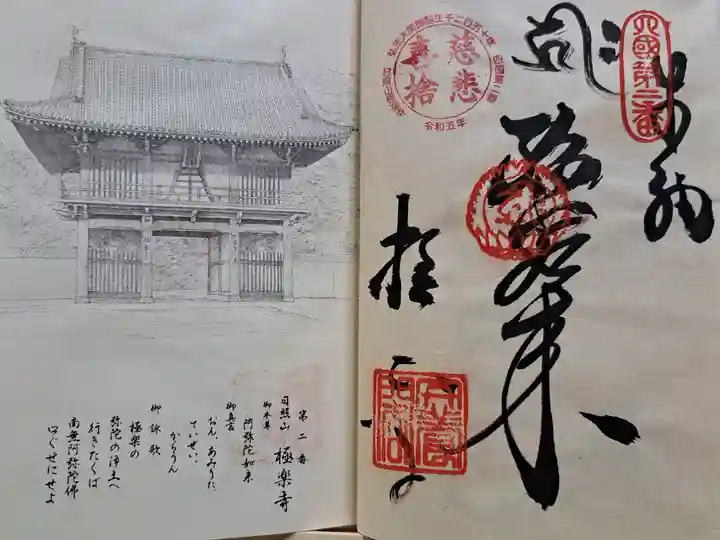 四國第二番
奉納
阿弥陀如来
極楽寺
慈悲
喜捨
令和五年
第二番
日照山 極楽寺
御本尊
阿弥陀如来
御真言
おん、あみりた、
ていせい、
からうん
御詠歌
極楽の
弥陀の浄土へ
行きたくば
南無阿弥陀佛
口ぐせにせよ